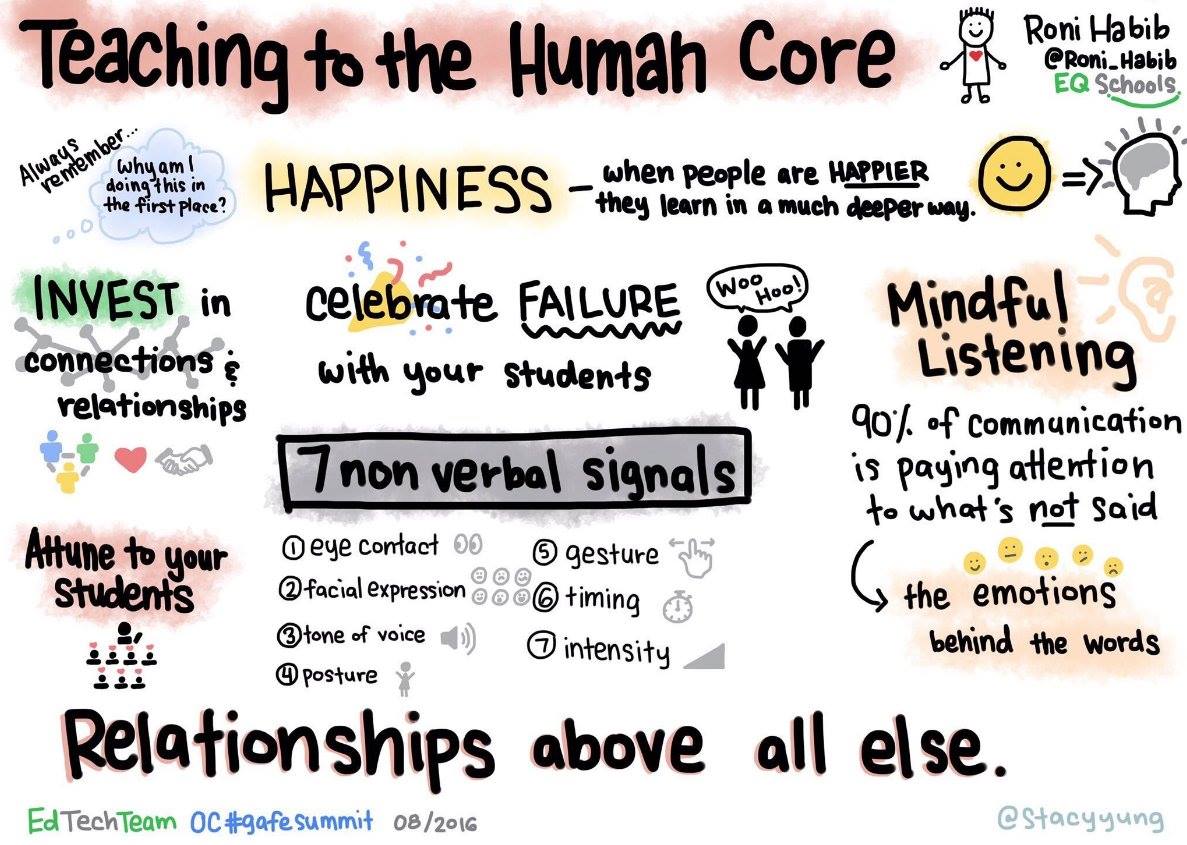 Teaching to the Human Core
Roni Habib
@Roni_Habib
EQ Schools
Always
remember...
Why am I
doing this in
the first place?
HAPPINESS – when people are HAPPIER
they learn in a much deeper way.
=>
INVEST in
connections &
relationships
celebrate FAILURE
with your students
Woo
Hoo!
Mindful
Listening
90% of communication
is paying attention
to what's not said
the emotions
behind the words
7 non verbal signals
① eye contact
② facial expression
③ tone of voice
④ posture
⑤ gesture
⑥ timing
⑦ intensity
Attune to your
students
Relationships above all else.
EdTechTeam OC#gafesummit 08/2016
@Stacyyung